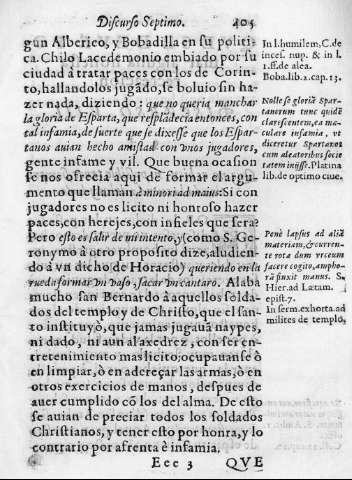 Discurso Septimo. 405
gun Alberico, y Bobadilla en su politi
ca. Chilo Lacedemonio embiado por su
ciudad à tratar paces con los de Corin-
to, hallandolos jugãdo, se boluio sin ha-
zer nada, diziendo: que no queria manchar
la gloria de Esparta, que resplãdecia entonces, con
tal infamia, de suerte que se dixesse que los Espar-
tanos auian hecho amistad con vnos jugadores,
gente infame y vil. Que buena ocasion
se nos ofrecia aqui de formar el argu-
mento que llaman à minori ad maius: Si con
jugadores no es licito ni honroso hazer
paces, con herejes, con infieles que serà?
Pero esto es salir de mi intento, y (como S. Ge-
ronymo à otro proposito dize, aludien-
do à vn dicho de Horacio) queriendo en la
rueda formar vn vaso, sacar vn cantaro. Alaba
mucho san Bernardo à aquellos solda-
dos del templo y de Christo, que el san-
to instituyò, que jamas jugauã naypes,
ni dado, ni aun al axedrez, con ser en-
tretenimiento mas licito: ocupauanse ò
en limpiar, ò en adereçar las armas, ò en
otros exercicios de manos, despues de
auer cumplido cõ los del alma. De esto
se auian de preciar todos los soldados
Christianos, y tener esto por honra, y lo
contrario por afrenta è infamia.
Eee 3 QVE
In l. humilem, C. de
inces. nup. & in l.
1. ff. de alea.
Boba. lib. 2. cap. 13.
Nolle se gloriã Spar-
tanorum tunc quidẽ
clarescentem, ea ma-
culare infamia, vt
diceretur Spartanos
cum aleatoribus socie
tatem inijsse. Platina
lib. de optimo ciue.
Penè lapsus ad aliã
materiam, & curren-
te rota dum vrceum
facere cogito, ampho-
rã finxit manus. S.
Hier. ad Latam.
epist. 7.
In serm. exhorta. ad
milites de templo,